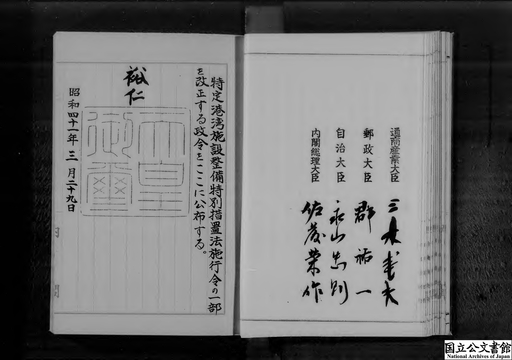 特定港湾施設整備特別措置法施行令の一部
を改正する政令をここに公布する。
裕仁
天皇
御璽
昭和四十一年三月二十九日
通商産業大臣 三木武夫
郵政大臣 郡祐一
自治大臣 永山忠則
内閣総理大臣 佐藤榮作
国立公文書館
National Archives of Japan